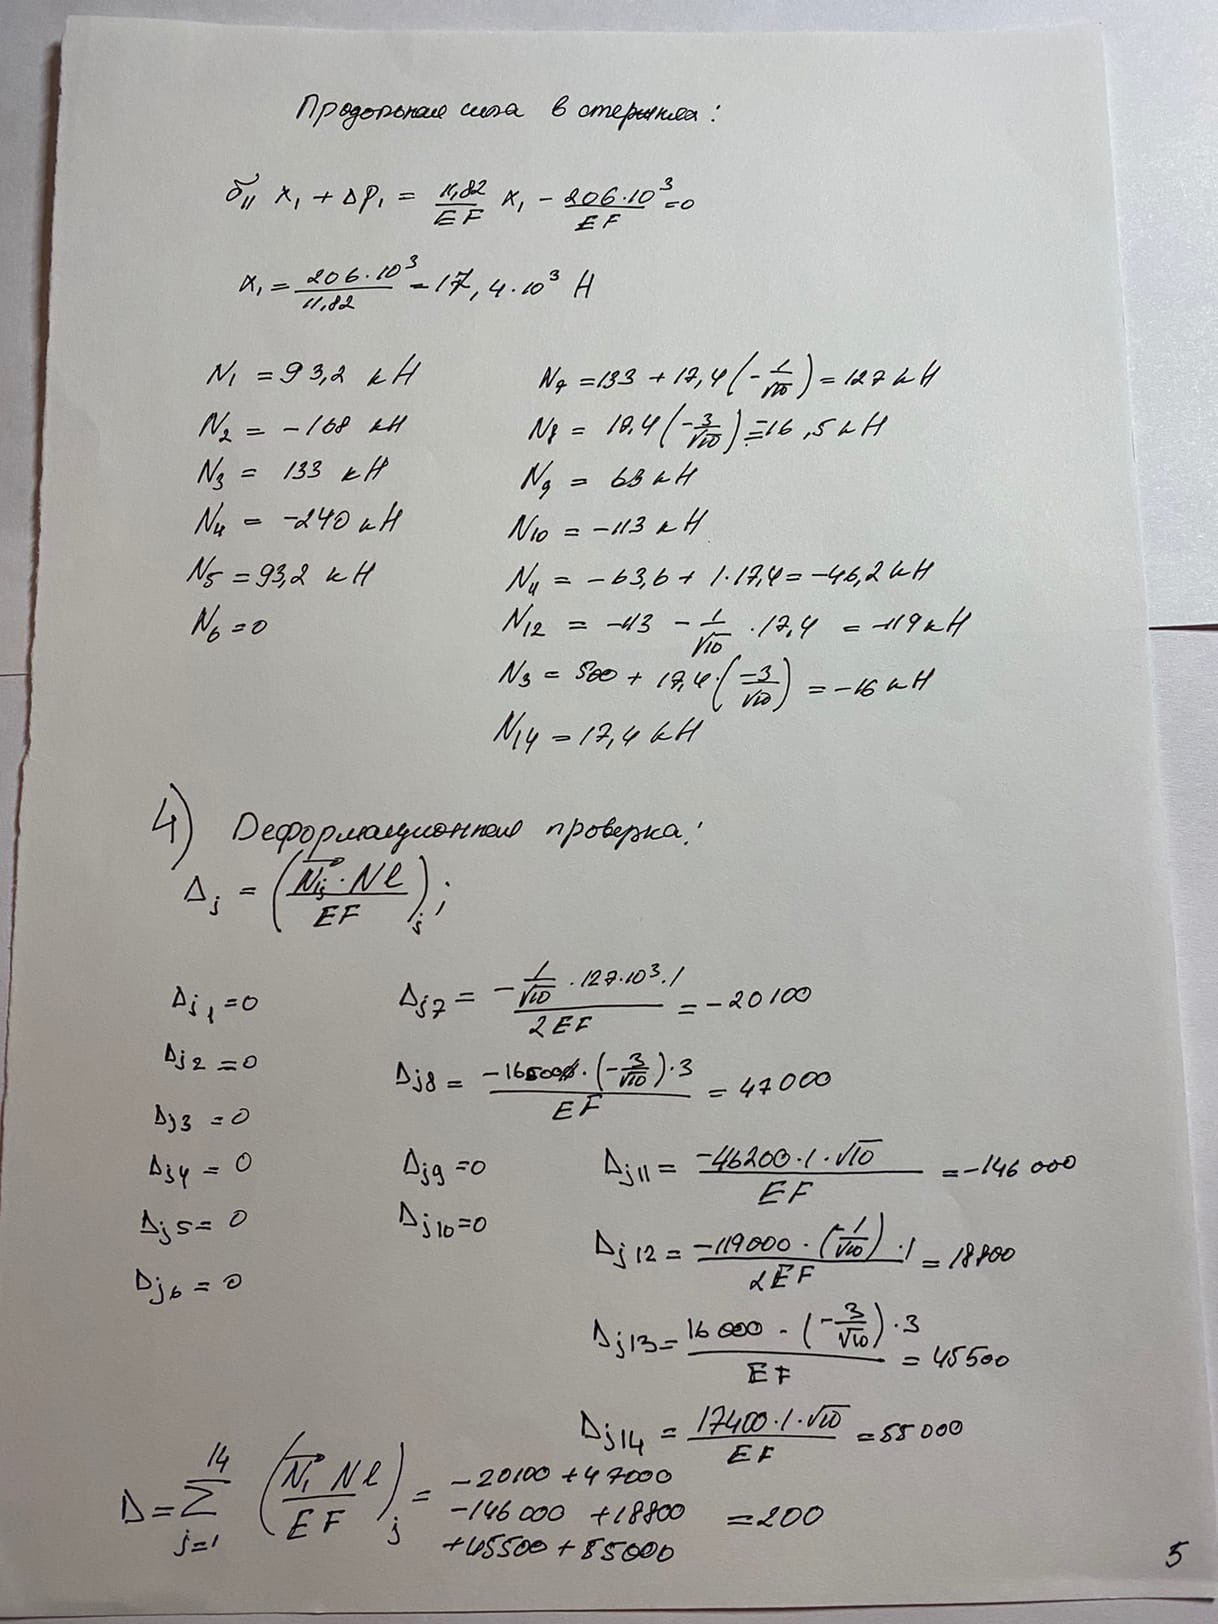 Продольная сила в стержнях:
δ₁₁ x₁ + Δp₁ = 11,82/EF x₁ - 206·10³/EF = 0
x₁ = 206·10³/11,82 = 17,4·10³ Н
N₁ = 93,2 кН
N₂ = -168 кН
N₃ = 133 кН
N₄ = -240 кН
N₅ = 93,2 кН
N₆ = 0
N₇ = 133 + 17,4(-1/√10) = 127 кН
N₈ = 17,4(-3/√10) = -16,5 кН
N₉ = 63 кН
N₁₀ = -113 кН
N₁₁ = -63,6 + 1·17,4 = -46,2 кН
N₁₂ = -113 - 1/√10 · 17,4 = -119 кН
N₃ = 500 + 17,4·(-3/√10) = -16 кН
N₁₄ = 17,4 кН
4) Деформационная проверка:
Δj = (N̄ij · Nl/EF)j ;
Δj1 = 0
Δj2 = 0
Δj3 = 0
Δj4 = 0
Δj5 = 0
Δj6 = 0
Δj7 = -1/√10 · 127·10³·1/2EF = -20100
Δj8 = -16500·(-3/√10)·3/EF = 47000
Δj9 = 0
Δj10 = 0
Δj11 = -46200·1·√10/EF = -146 000
Δj12 = -119000·(-1/√10)·1/2EF = 18800
Δj13 = 16000·(-3/√10)·3/EF = 45500
Δj14 = 17400·1·√10/EF = 55 000
Δ = Σ¹⁴j=1 (N̄₁ Nl/EF)j = -20100 + 47000 -146 000 + 18800 + 45500 + 55000 = 200
5